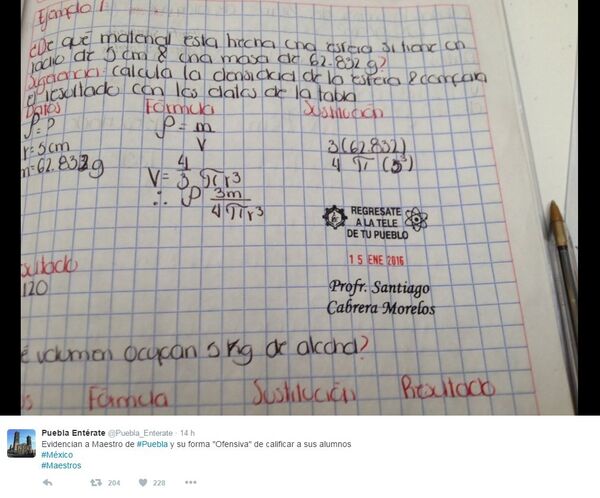 Ejemplo 1
¿De qué material esta hecha una esfera si tiene un
radio de 5 cm & una masa de 62.832 g?
Sugerencia: calcula la densidad de la esfera & compara
el resultado con los datos de la tabla
Datos Fórmula Sustitución
ρ=?
r=5cm
m=62.832g
ρ=m
V
V=4
3 π r³
∴ ρ 3m
4πr³
3(62.832)
4 π (5³)
REGRESATE
A LA TELE
DE TU PUEBLO
15 ENE 2016
Profr. Santiago
Cabrera Morelos
sultado
120
é volumen ocupan 5 kg de alcohol?
s Fórmula Sustitución Resultado
Puebla Entérate @Puebla_Enterate · 14 h
Evidencian a Maestro de #Puebla y su forma "Ofensiva" de calificar a sus alumnos
#México
#Maestros
204 228